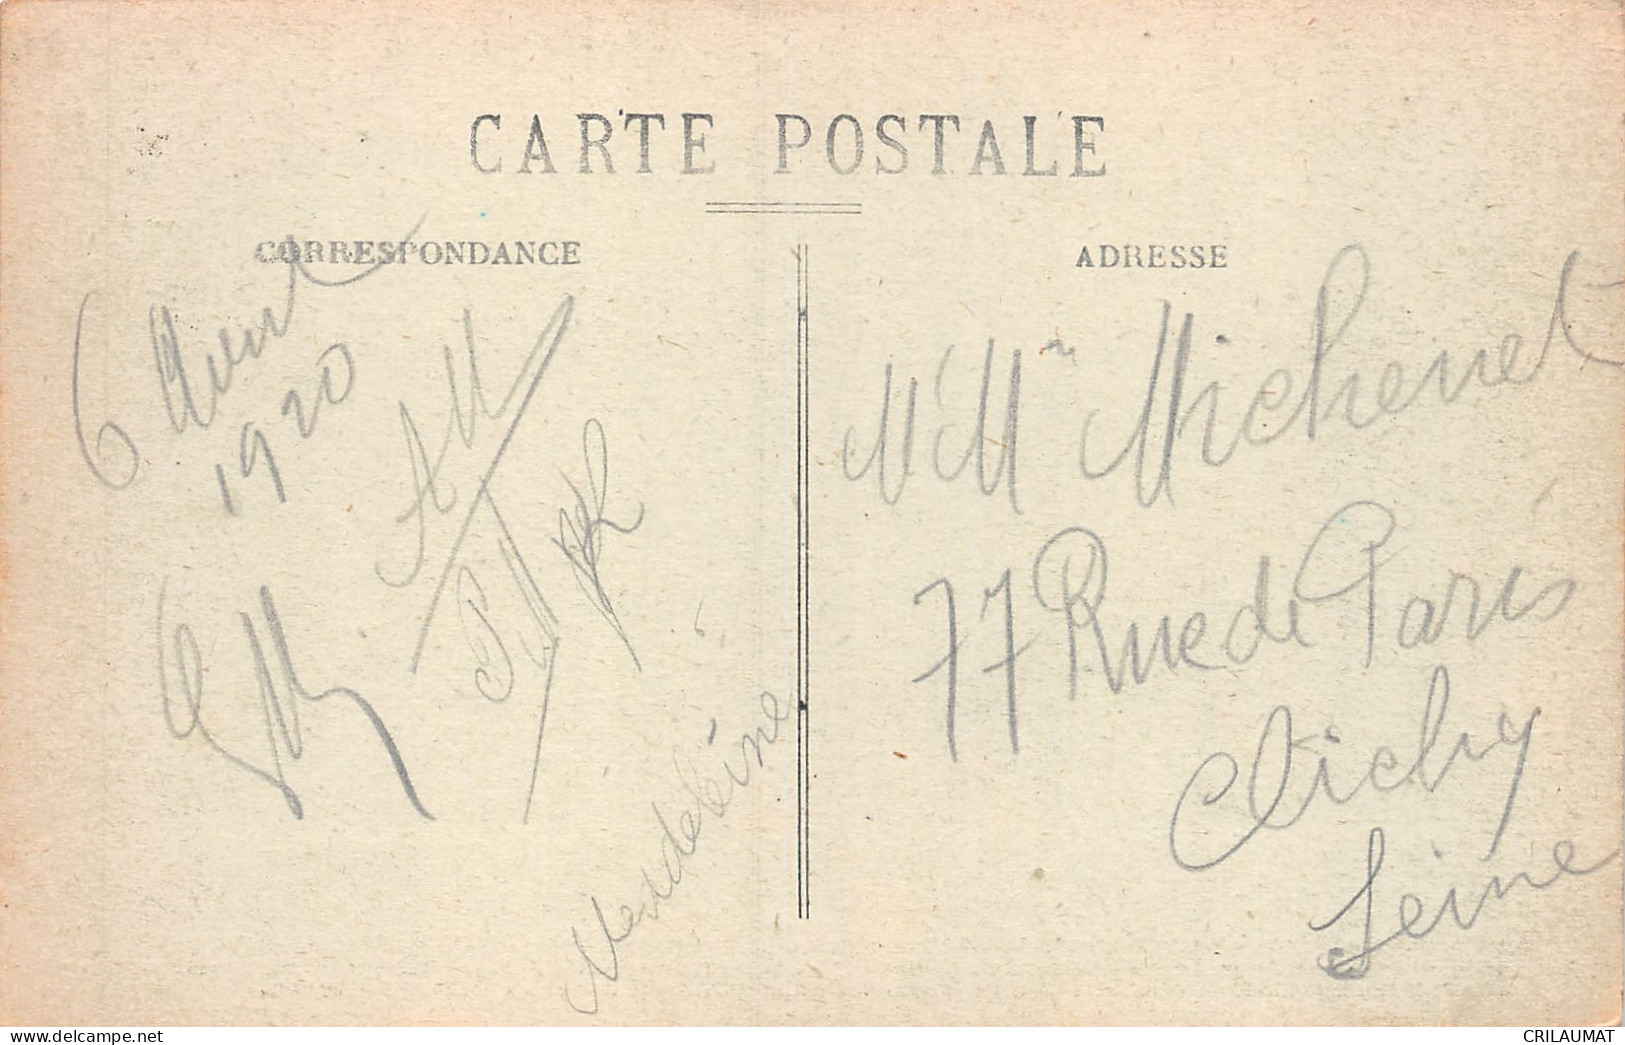 CARTE POSTALE
CORRESPONDANCE
ADRESSE
6 Aout
1920
AM
Madeleine
M M Michenet
77 Rue de Paris
Clichy
Seine
delcampe.net
CRILAUMAT